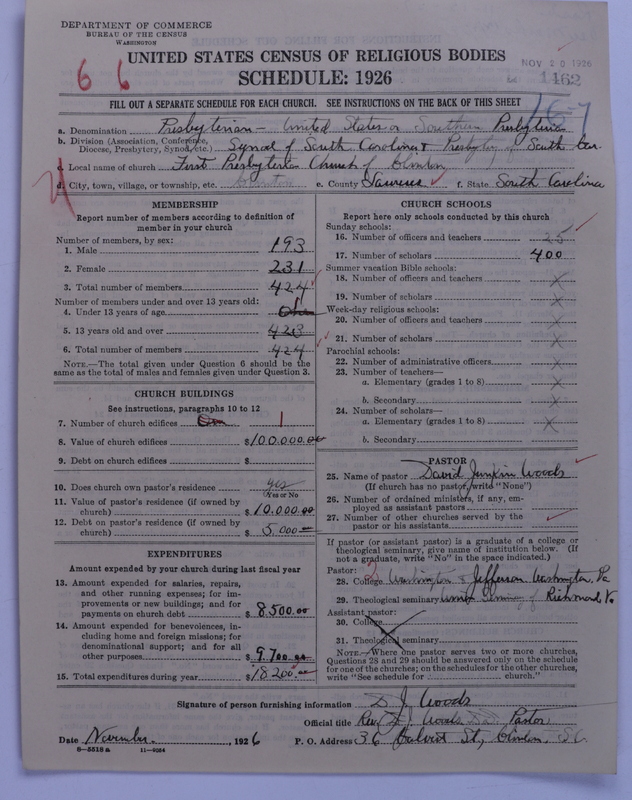 DEPARTMENT OF COMMERCE
BUREAU OF THE CENSUS
WASHINGTON
UNITED STATES CENSUS OF RELIGIOUS BODIES
SCHEDULE: 1926
NOV 20 1926
1462
6 6
16-7
FILL OUT A SEPARATE SCHEDULE FOR EACH CHURCH. SEE INSTRUCTIONS ON THE BACK OF THIS SHEET
a. Denomination Presbyterian - United States or Southern Presbyterian
b. Division (Association, Conference, Diocese, Presbytery, Synod, etc.) Synod of South Carolina & Presbytery of South Car.
c. Local name of church First Presbyterian Church of Clinton
d. City, town, village, or township, etc. Clinton e. County Laurens f. State South Carolina
MEMBERSHIP
Report number of members according to definition of
member in your church
Number of members, by sex:
1. Male 193
2. Female 231
3. Total number of members 424
Number of members under and over 13 years old:
4. Under 13 years of age 1
5. 13 years old and over 423
6. Total number of members 424
NOTE.—The total given under Question 6 should be the
same as the total of males and females given under Question 3.
CHURCH BUILDINGS
See instructions, paragraphs 10 to 12
7. Number of church edifices One 1
8. Value of church edifices $100,000.00
9. Debt on church edifices $
10. Does church own pastor's residence yes
(Yes or No)
11. Value of pastor's residence (if owned by
church) $10,000.00
12. Debt on pastor's residence (if owned by
church) $5,000
EXPENDITURES
Amount expended by your church during last fiscal year
13. Amount expended for salaries, repairs,
and other running expenses; for im-
provements or new buildings; and for
payments on church debt $8,500.00
14. Amount expended for benevolences, in-
cluding home and foreign missions; for
denominational support; and for all
other purposes $9,700.00
15. Total expenditures during year $18200.00
CHURCH SCHOOLS
Report here only schools conducted by this church
Sunday schools:
16. Number of officers and teachers 25
17. Number of scholars 400
Summer vacation Bible schools:
18. Number of officers and teachers x
19. Number of scholars x
Week-day religious schools:
20. Number of officers and teachers x
21. Number of scholars x
Parochial schools:
22. Number of administrative officers x
23. Number of teachers—
a. Elementary (grades 1 to 8) x
b. Secondary x
24. Number of scholars—
a. Elementary (grades 1 to 8) x
b. Secondary
PASTOR
25. Name of pastor David Junkin Woods
(If church has no pastor, write "None")
26. Number of ordained ministers, if any, em-
ployed as assistant pastors
27. Number of other churches served by the
pastor or his assistants
If pastor (or assistant pastor) is a graduate of a college or
theological seminary, give name of institution below. (If
not a graduate, write "No" in the space indicated.)
Pastor: 2
28. College Washington & Jefferson Washington, Pa
29. Theological seminary Union Seminary of Richmond Va
Assistant pastor:
30. College
31. Theological seminary
NOTE.—Where one pastor serves two or more churches,
Questions 28 and 29 should be answered only on the schedule
for one of the churches; on the schedules for the other churches,
write "See schedule for church."
Signature of person furnishing information D. J. Woods
Official title Rev. D. J. Woods D.D. Pastor
Date November, 1926 P. O. Address 36 Calvert St, Clinton, S.C.
6—5518a 11—9064